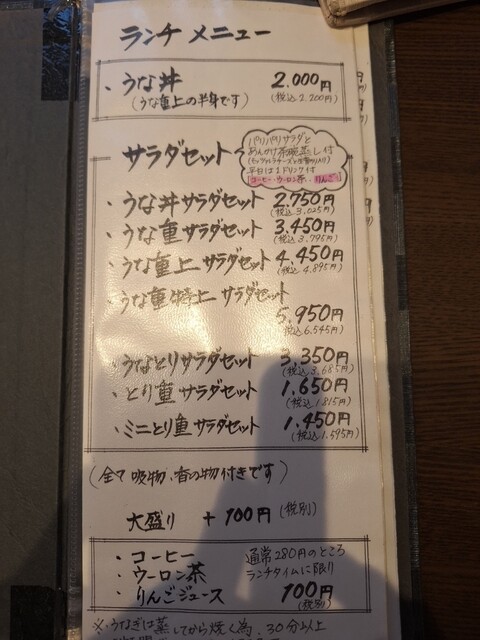 ランチ メニュー
・うな丼 2.000円
(うな重上の半身です) (税込2.200円)
サラダセット
パリパリサラダと
あんかけ茶碗蒸し付
平日は1ドリンク付
(コーヒー・ウーロン茶・りんご)
・うな丼サラダセット 2.750円
(税込3.025円)
・うな重サラダセット 3.450円
(税込3.795円)
・うな重上サラダセット 4.450円
(税込4.895円)
・うな重特上サラダセット
5.950円
(税込6.545円)
・うなとりサラダセット 3.350円
(税込3.685円)
・とり重サラダセット 1.650円
(税込1.815円)
・ミニとり重サラダセット 1.450円
(税込1.595円)
(全て吸物、香の物付きです)
大盛り +100円 (税別)
・コーヒー 通常280円のところ
・ウーロン茶 ランチタイムに限り
・りんごジュース 100円
(税別)
※・うなぎは蒸してから焼く為、30分以上